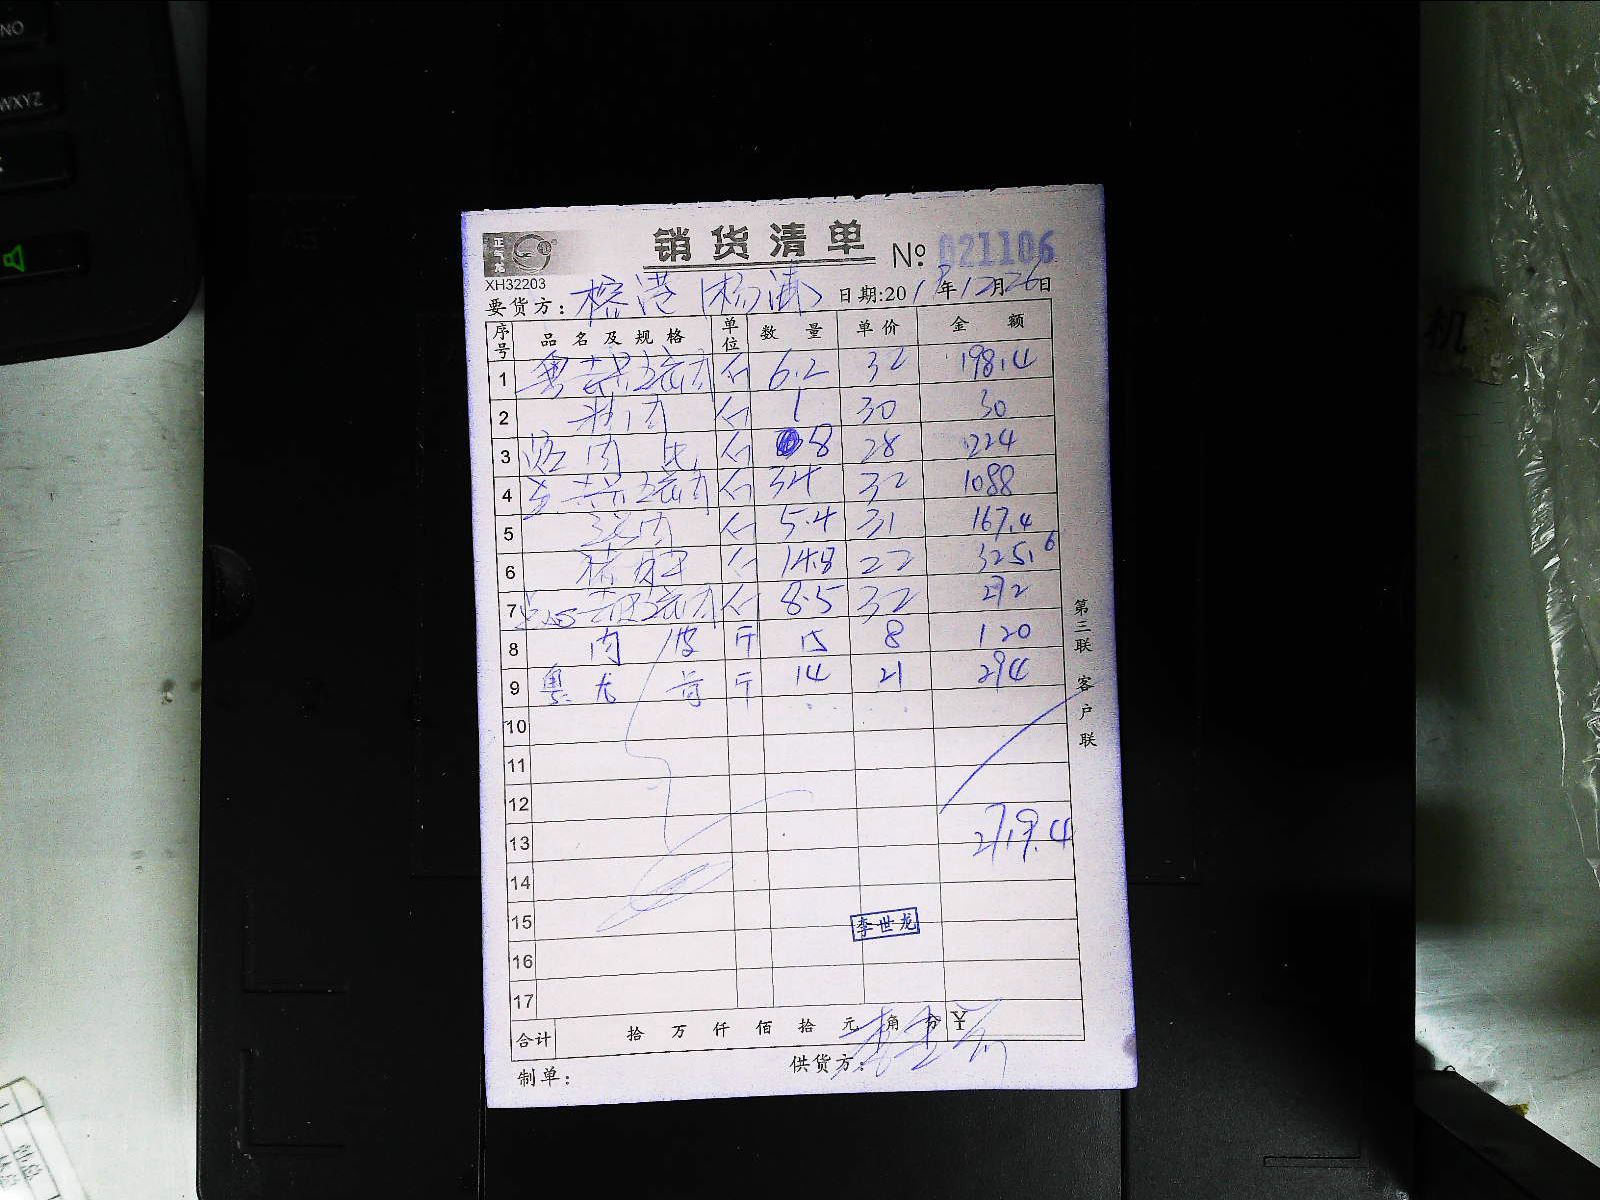 NO
WXYZ
机
正气龙
销货清单 Nº 021106
XH32203
要货方: 榕港(杨浦) 日期:2018年12月26日
序号 品名及规格 单位 数量 单价 金额
1 斤 6.2 32 198.4
2 精肉 斤 1 30 30
3 斤 8 28 224
4 斤 34 32 1088
5 斤 5.4 31 167.4
6 猪 斤 14.8 22 325.6
7 点心 斤 8.5 32 272
8 肉皮 斤 15 8 120
9 粤 龙骨 斤 14 21 294
10
11
12
13 2719.4
14
15 李世龙
16
17
合计 拾 万 仟 佰 拾 元 角 分 ¥
制单: 供货方: 李世龙
第三联 客户联